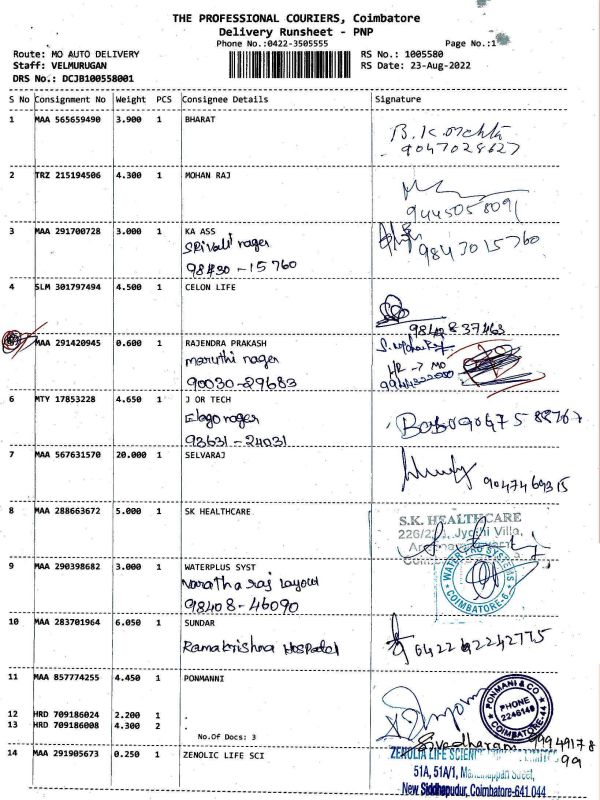 THE PROFESSIONAL COURIERS, Coimbatore
Delivery Runsheet - PNP
Phone No.:0422-3505555
Page No.:1
Route: MO AUTO DELIVERY
Staff: VELMURUGAN
DRS No.: DCJB100558001
RS No.: 1005580
RS Date: 23-Aug-2022
S No Consignment No Weight PCS Consignee Details Signature
1 MAA 565659490 3.900 1 BHARAT
9047028627
2 TRZ 215194506 4.300 1 MOHAN RAJ
9445058091
3 MAA 291700728 3.000 1 KA ASS
nager
98430-15760
9847015760
4 SLM 301797494 4.500 1 CELON LIFE
98428 37463
MAA 291420945 0.600 1 RAJENDRA PRAKASH
maruthi nager
HR → MO
90030-29683
6 MTY 17853228 4.650 1 J OR TECH
Elago nager
93631-24031
7 MAA 567631570 20.000 1 SELVARAJ
9047469315
8 MAA 288663672 5.000 1 SK HEALTHCARE
S.K. HEALTHCARE
226/22, Jyothi Villa,
9 MAA 290398682 3.000 1 WATERPLUS SYST
Layout
98408-46090
COIMBATORE-6
10 MAA 283701964 6.050 1 SUNDAR
Ramakrishna Hospatal
11 MAA 857774255 4.450 1 PONMANNI
PONMANI & CO
PHONE
2246148
COIMBATORE-44
12 HRD 709186024 2.200 1 .
13 HRD 709186008 4.300 2 .
No.Of Docs: 3
99949178
99
14 MAA 291905673 0.250 1 ZENOLIC LIFE SCI
51A, 51A/1,
New Siddhapudur, Coimbatore-641 044